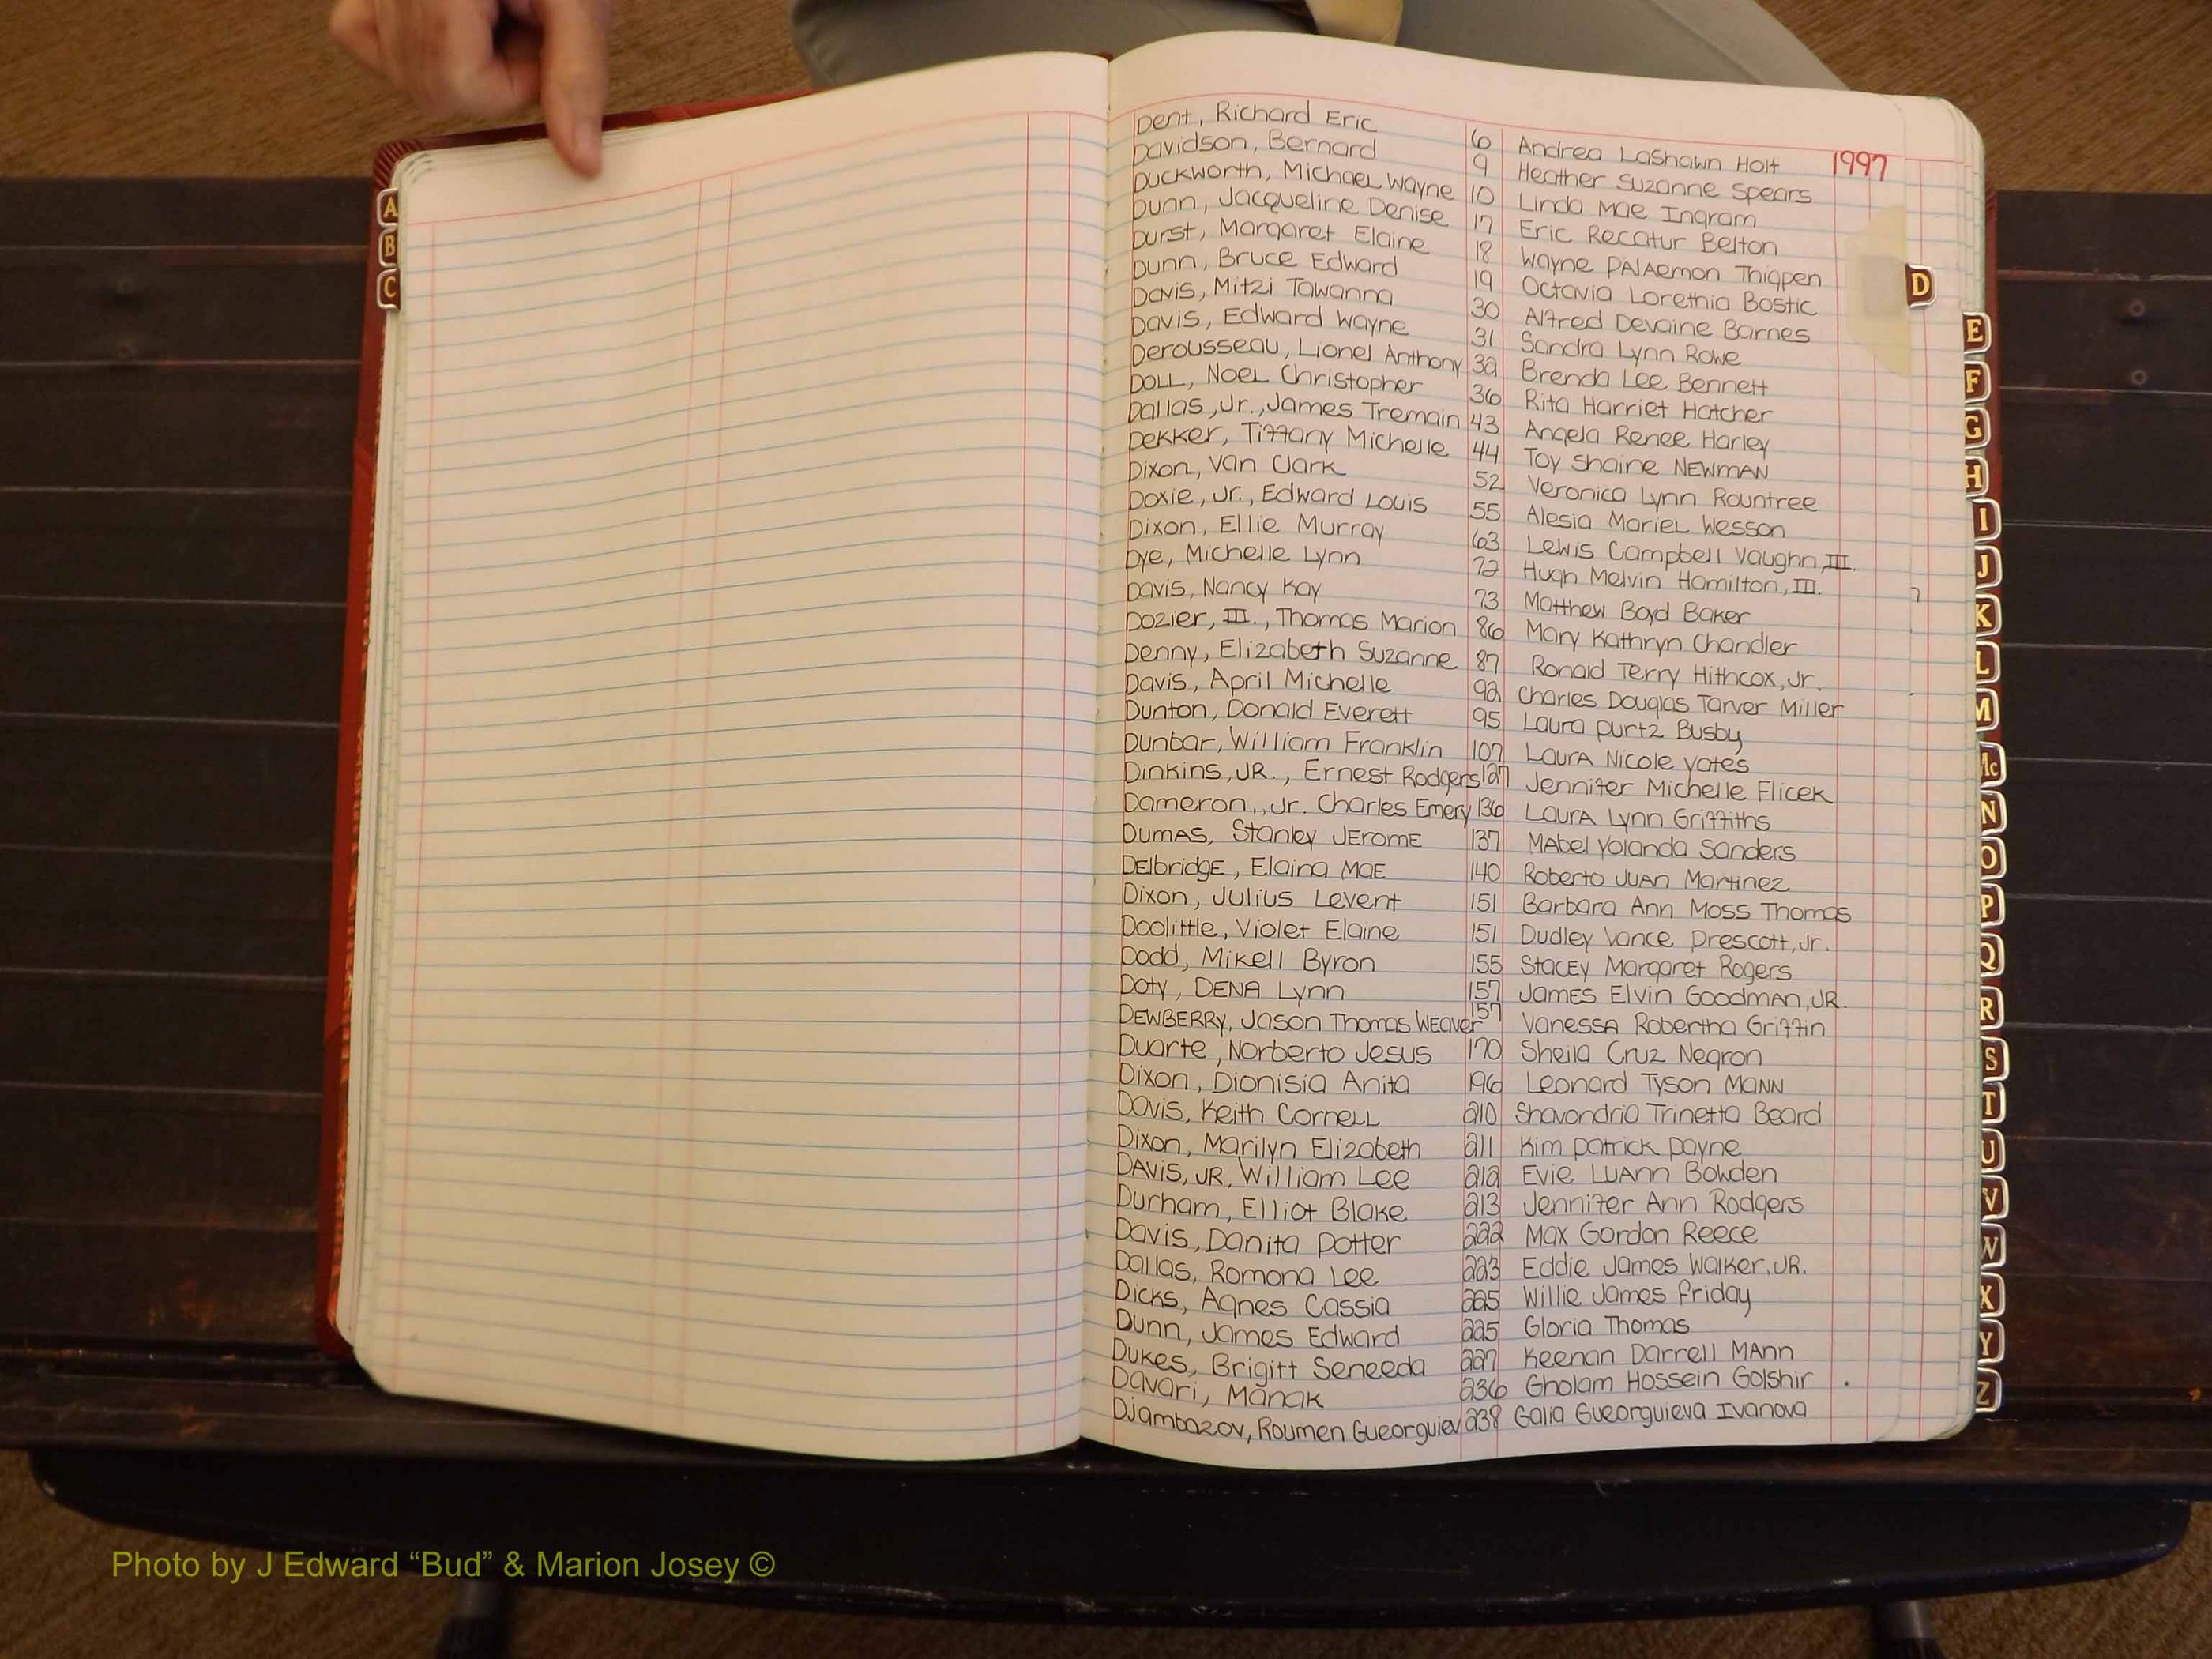 1997
Dent, Richard Eric 6 Andrea Lashawn Holt
Davidson, Bernard 9 Heather Suzanne Spears
Duckworth, Michael Wayne 10 Linda Mae Ingram
Dunn, Jacqueline Denise 17 Eric Recatur Belton
Durst, Margaret Elaine 18 Wayne PAlAemon Thigpen
Dunn, Bruce Edward 19 Octavia Lorethia Bostic
Davis, Mitzi Tawanna 30 Alfred Devaine Barnes
Davis, Edward Wayne 31 Sandra Lynn Rowe
Derousseau, Lionel Anthony 32 Brenda Lee Bennett
Doll, Noel Christopher 36 Rita Harriet Hatcher
Dallas, Jr., James Tremain 43 Angela Renee Harley
Dekker, Tiffany Michelle 44 Toy Shaine Newman
Dixon, Van Clark 52 Veronica Lynn Rountree
Doxie, Jr., Edward Louis 55 Alesia Mariel Wesson
Dixon, Ellie Murray 63 Lewis Campbell Vaughn, III.
Dye, Michelle Lynn 72 Hugh Melvin Hamilton, III.
Davis, Nancy Kay 73 Matthew Boyd Baker
Dozier, III., Thomas Marion 86 Mary Kathryn Chandler
Denny, Elizabeth Suzanne 87 Ronald Terry Hithcox, Jr.
Davis, April Michelle 92 Charles Douglas Tarver Miller
Dunton, Donald Everett 95 Laura Purtz Busby
Dunbar, William Franklin 107 Laura Nicole Yates
Dinkins, JR., Ernest Rodgers 127 Jennifer Michelle Flicek
Dameron,, Jr. Charles Emery 136 Laura Lynn Griffiths
Dumas, Stanley Jerome 137 Mabel Yolanda Sanders
Delbridge, Elaina Mae 140 Roberto Juan Martinez
Dixon, Julius Levent 151 Barbara Ann Moss Thomas
Doolittle, Violet Elaine 151 Dudley Vance Prescott, Jr.
Dodd, Mikell Byron 155 Stacey Margaret Rogers
Doty, Dena Lynn 157 James Elvin Goodman, JR.
Dewberry, Jason Thomas Weaver 157 Vanessa Robertha Griffin
Duarte, Norberto Jesus 170 Sheila Cruz Negron
Dixon, Dionisia Anita 196 Leonard Tyson Mann
Davis, Keith Cornell 210 Shavondria Trinetta Beard
Dixon, Marilyn Elizabeth 211 Kim Patrick Payne
Davis, JR, William Lee 212 Evie LuAnn Bowden
Durham, Elliot Blake 213 Jennifer Ann Rodgers
Davis, Danita Potter 222 Max Gordon Reece
Dallas, Romona Lee 223 Eddie James Walker, JR.
Dicks, Agnes Cassia 225 Willie James Friday
Dunn, James Edward 225 Gloria Thomas
Dukes, Brigitt Seneeda 227 Keenan Darrell Mann
Davari, Manak 236 Gholam Hossein Golshir
Djambazov, Roumen Gueorguiev 238 Galia Gueorguieva Ivanova
A
B
C
D
E
F
G
H
I
J
K
L
M
Mc
N
O
P
Q
R
S
T
U
V
W
X
Y
Z
Photo by J Edward “Bud” & Marion Josey ©